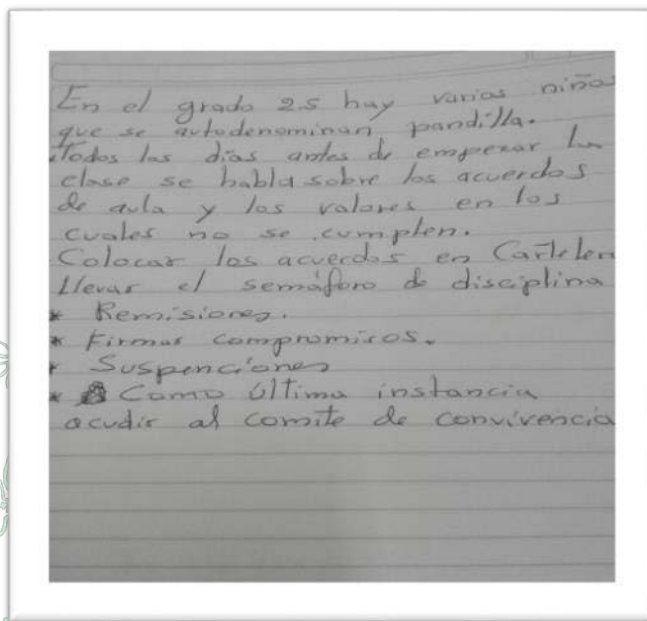 En el grado 2.5 hay varios niños
que se autodenominan pandilla.
Todos los días antes de empezar la
clase se habla sobre los acuerdos
de aula y los valores en los
cuales no se cumplen.
Colocar los acuerdos en
Llevar el semáforo de disciplina
* Remisiones.
* Firmar compromisos.
* Suspenciones
* Como última instancia
acudir al comite de convivencia